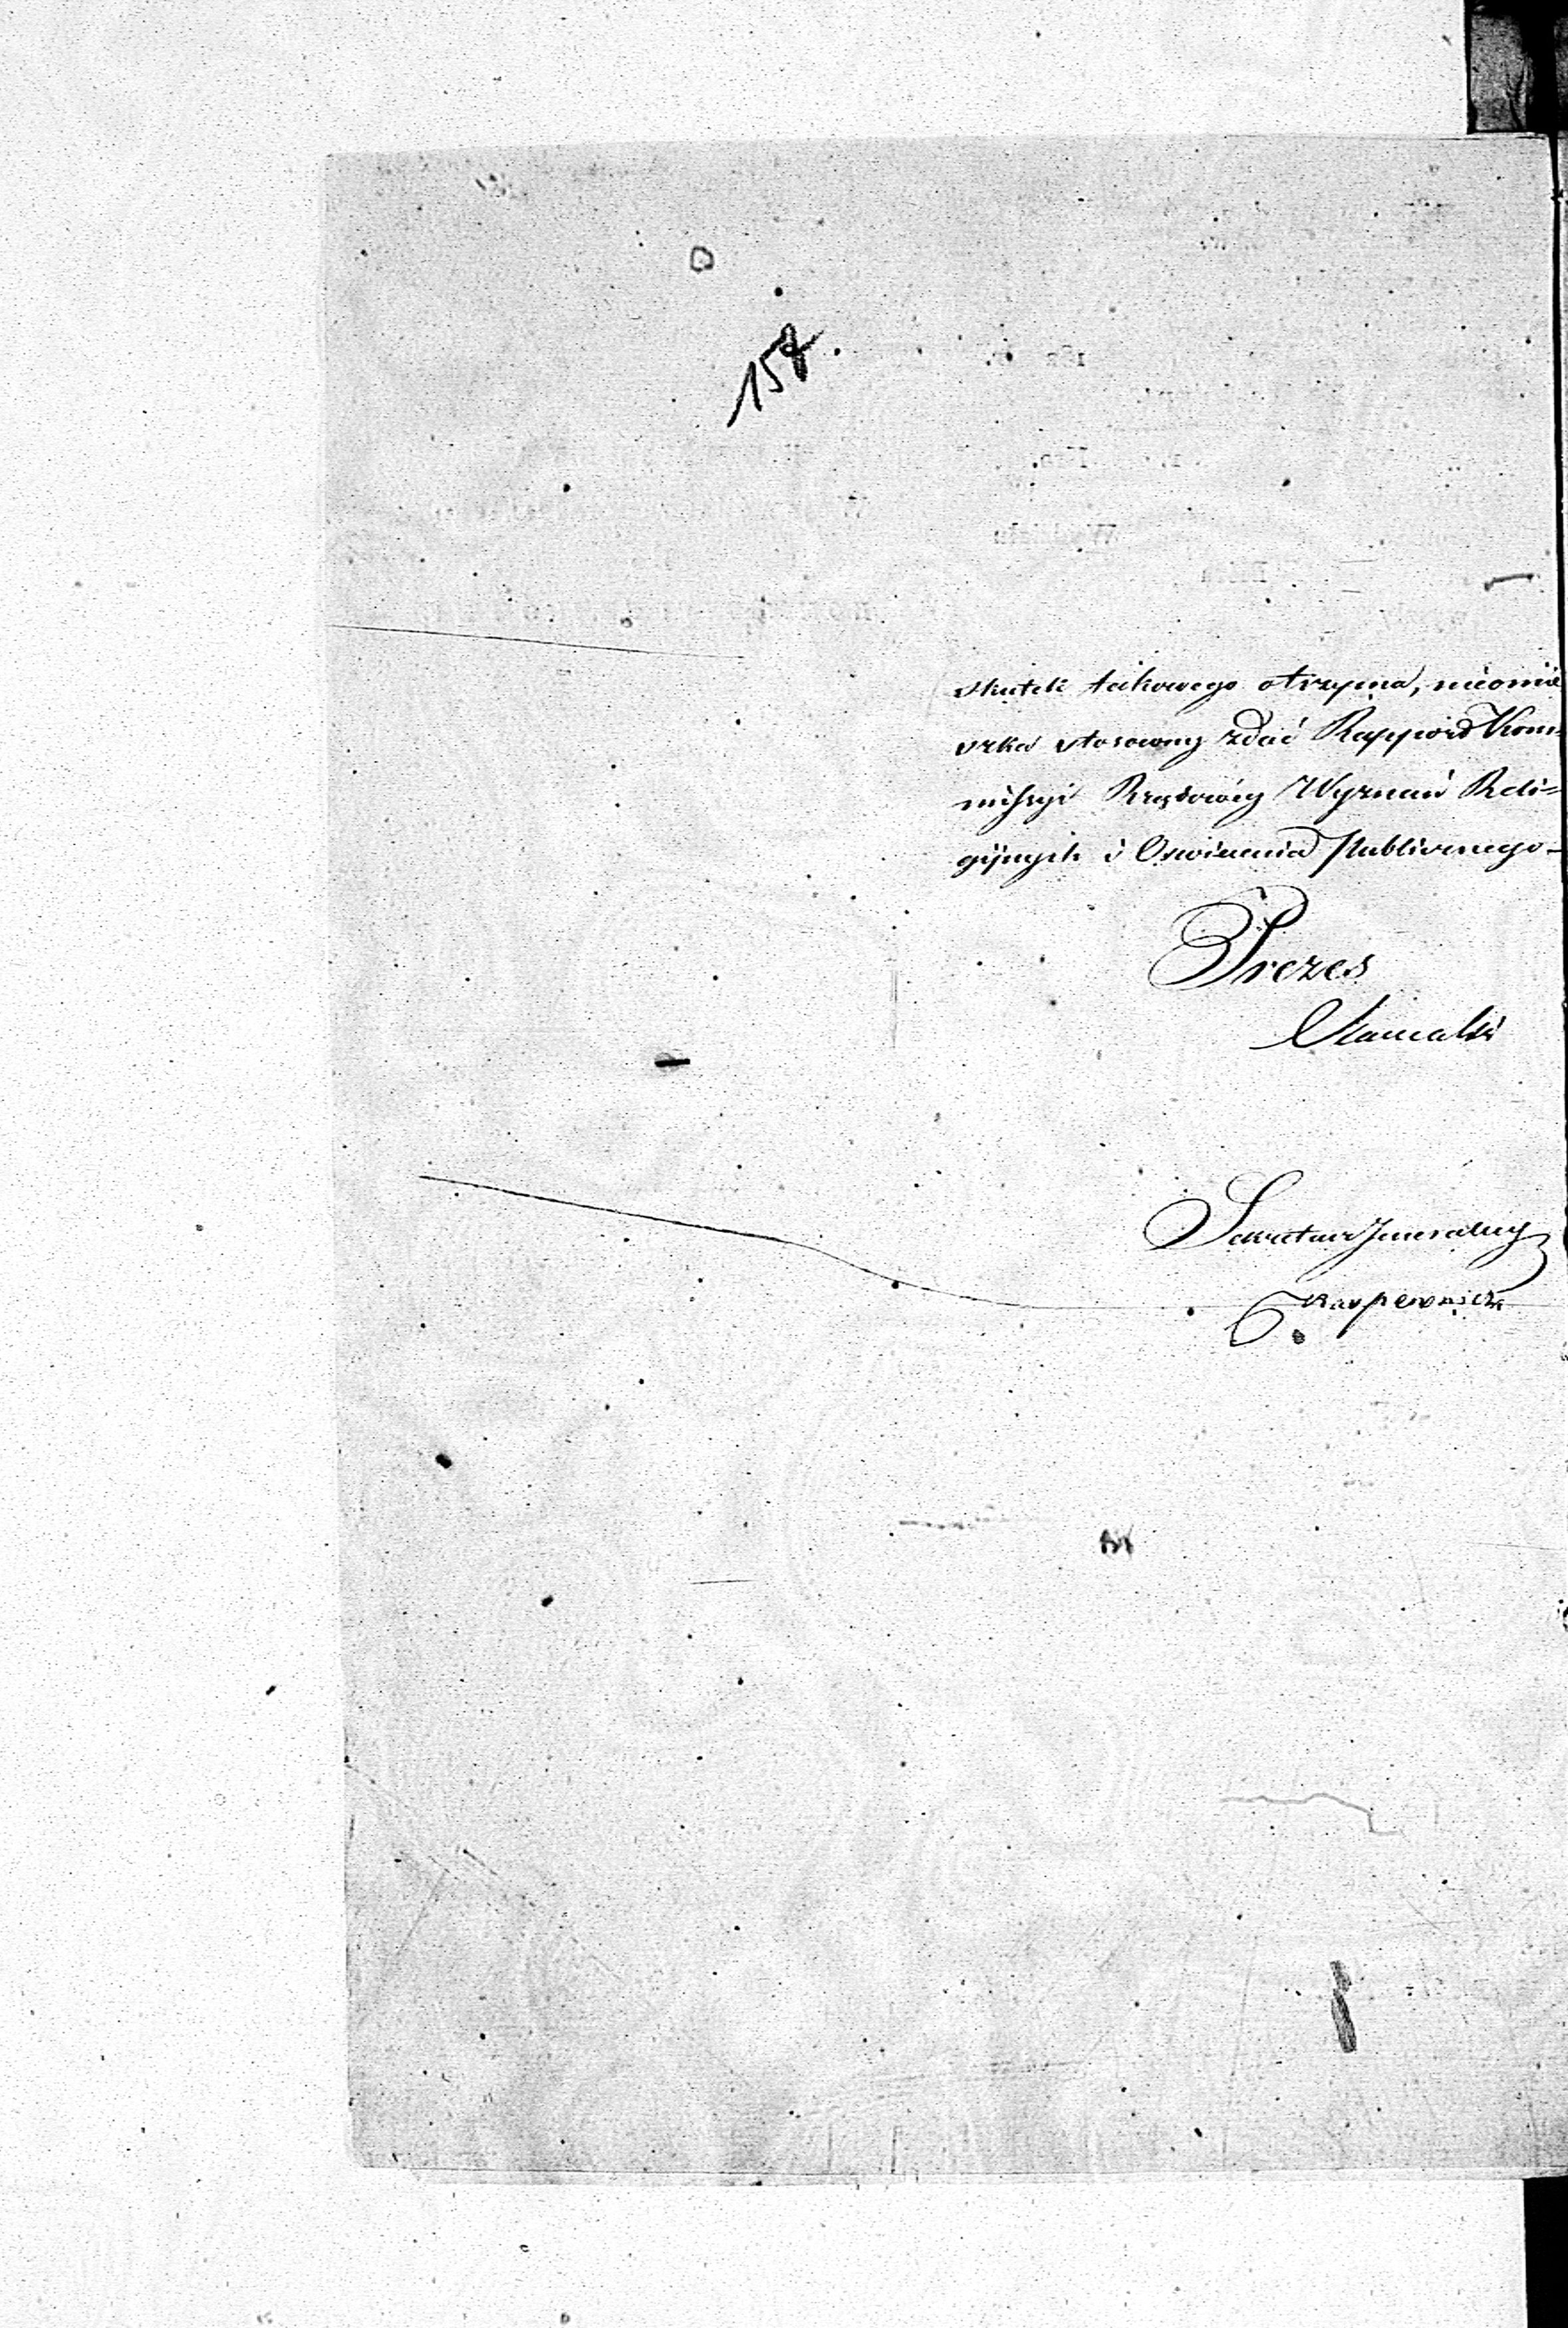 157.
skutek takowego otrzyma, nieomie
szka stosowny zdać Rapport Kom=
missyi Rządowéy Wyznań Reli=
giynych i Oswiecenia Publicznego –
Prezes
Sekretarz Jeneralny
Karpewicz